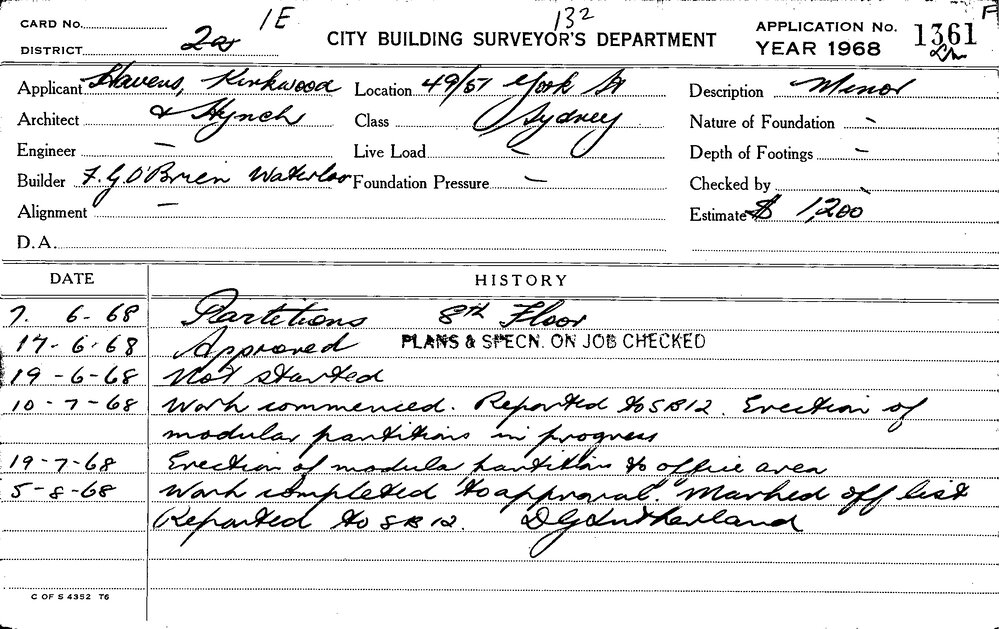 CARD No. 1E 132 F
CITY BUILDING SURVEYOR'S DEPARTMENT
APPLICATION No. 1361
DISTRICT 2a YEAR 1968
Applicant Stavens, Kirkwood Location 49/57 York St Description Minor
Architect & Hynch Class Sydney Nature of Foundation -
Engineer - Live Load - Depth of Footings -
Builder F. G O'Brien Waterloo Foundation Pressure - Checked by -
Alignment - Estimate $ 1,200
D.A.
DATE HISTORY
7. 6-68 Partitions 8th Floor
17-6-68 Approved PLANS & SPECN. ON JOB CHECKED
19-6-68 Not started
10-7-68 Work commenced. Reported to SB12. Erection of
modular partitions in progress
19-7-68 Erection of modular partition to office area
5-8-68 Work completed to approval. Marked off list
Reported to SB12. D G Sutherland
C OF S 4352 T6